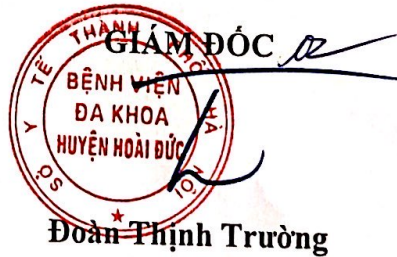 GIÁM ĐỐC
SỞ Y TẾ THÀNH PHỐ HÀ NỘI
BỆNH VIỆN
ĐA KHOA
HUYỆN HOÀI ĐỨC
Đoàn Thịnh Trường